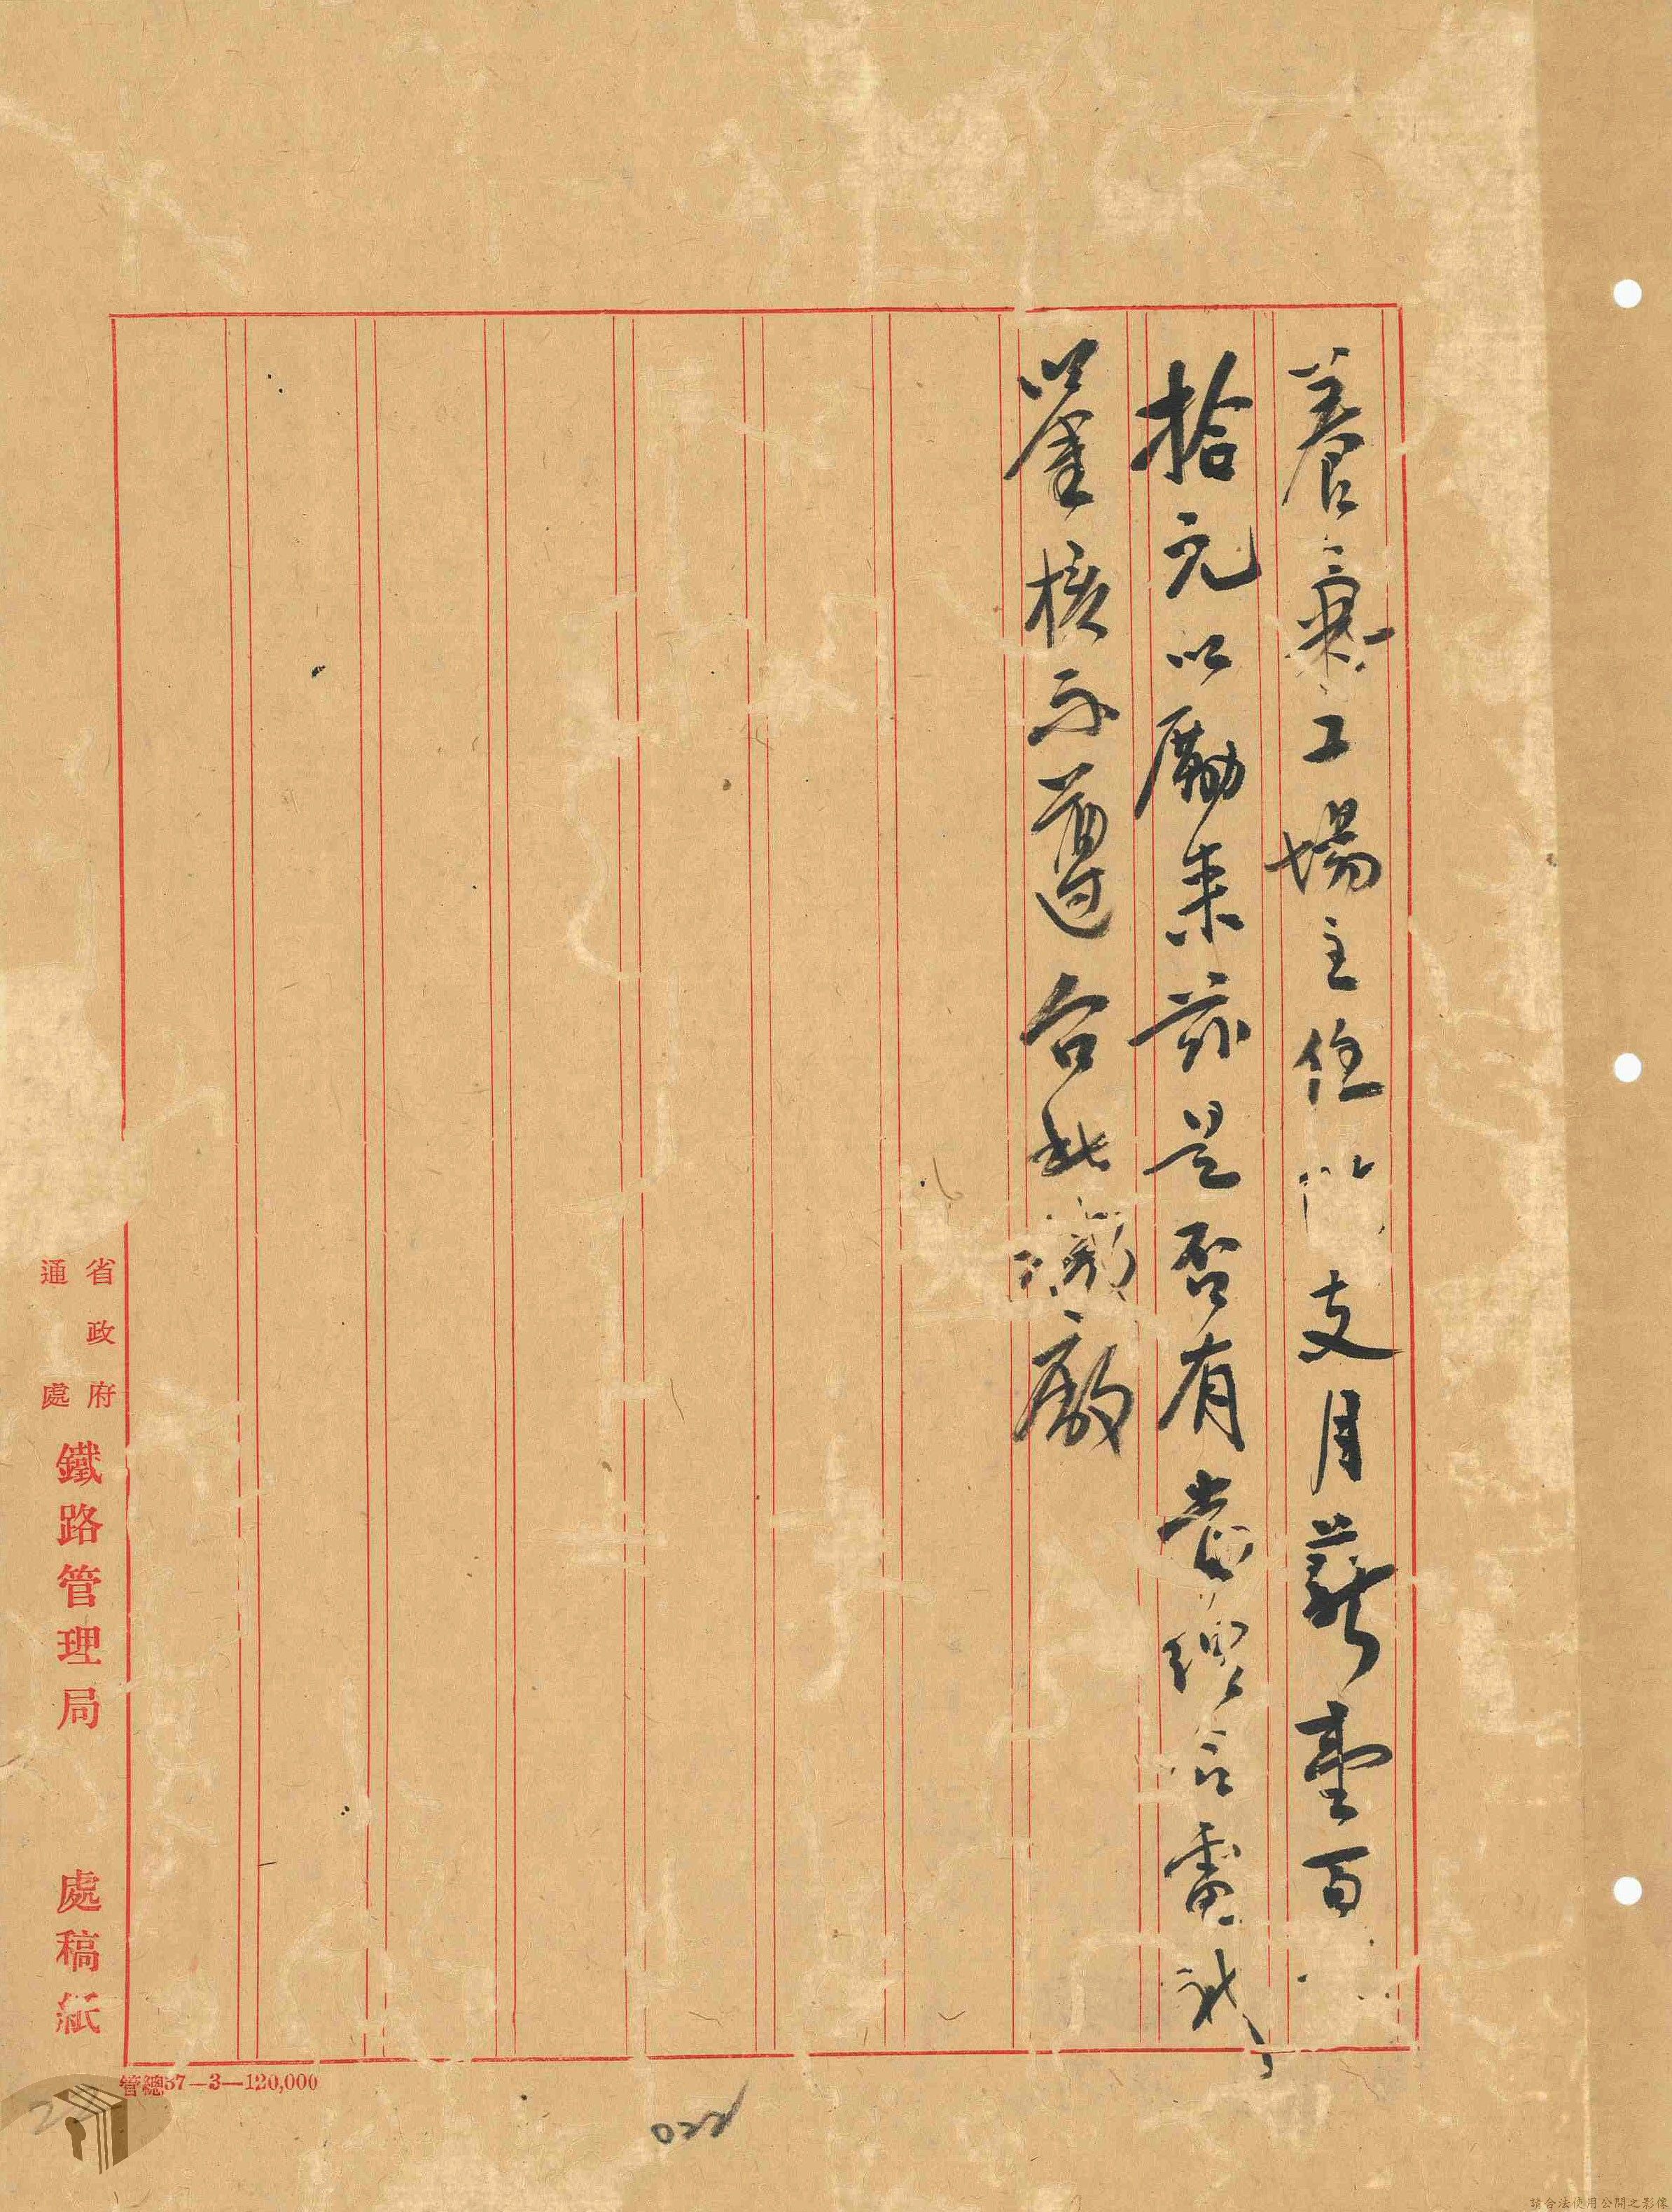 養氣工場主任　支月薪壹百
拾元以勵來茲是否有當理合電祈
鑒核示遵台北　廠
省政府
通　處
鐵路管理局　處稿紙
管總37—3—120,000
請合法使用公開之影像